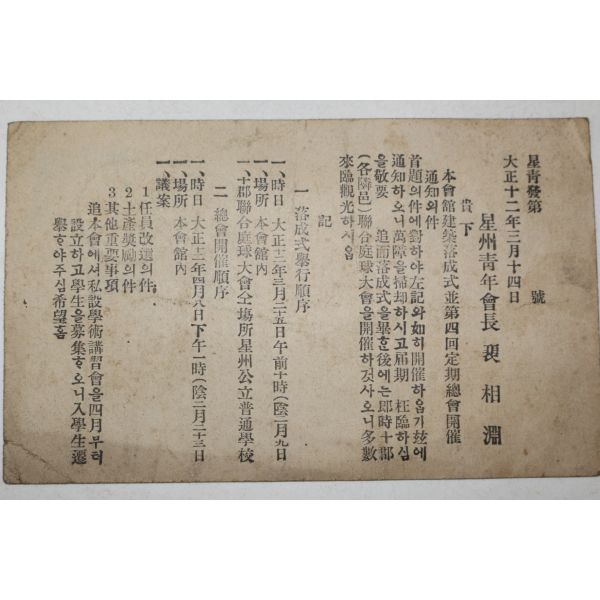 星青發第 號
大正十二年三月十四日
星州靑年會長 裵相淵
貴下
本會館建築落成式並第四回定期總會開催
通知의件
首題의件에對하야左記와如히開催하옵기玆에
通知하오니萬障을掃却하시고屆期 枉臨하심
을敬要 追而落成式을畢한後에는即時十郡
(各隣邑)聯合庭球大會을開催하것사오니多數
來臨觀光하시옵
記
一 落成式擧行順序
一、時日 大正十二年三月二十五日午前十時(陰二月九日
一、場所 本會館內
一、十郡聯合庭球大會 仝場所星州公立普通學校
二 總會開催順序
一、時日 大正十二年四月八日下午一時(陰二月二十三日
一、場所 本會館內
一、議案
1 任員改選의件
2 土產奬勵의件
3 其他重要事項
追本會에셔私設學術講習會을四月부터
設立하고學生을募集ᄒᆞ오니入學生選
擧ᄒᆞ야주심希望홈